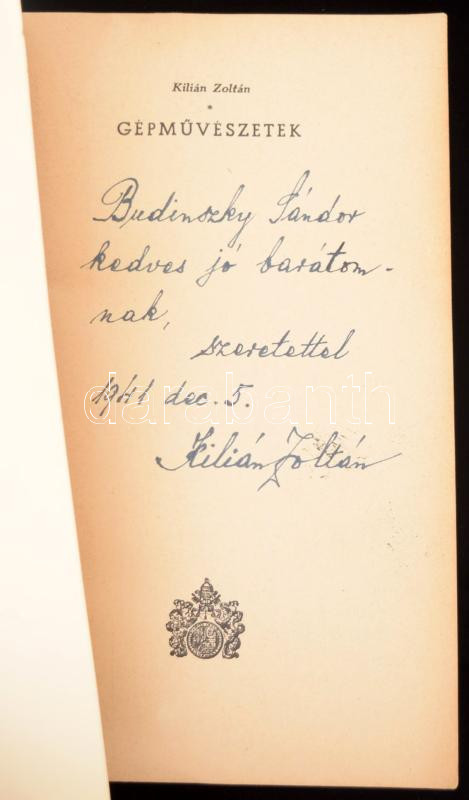 Kilián Zoltán
*
GÉPMŰVÉSZETEK
Budinszky Sándor
kedves jó barátom-
nak,
szeretettel
1941 dec. 5.
darabanth
Kilián Zoltán